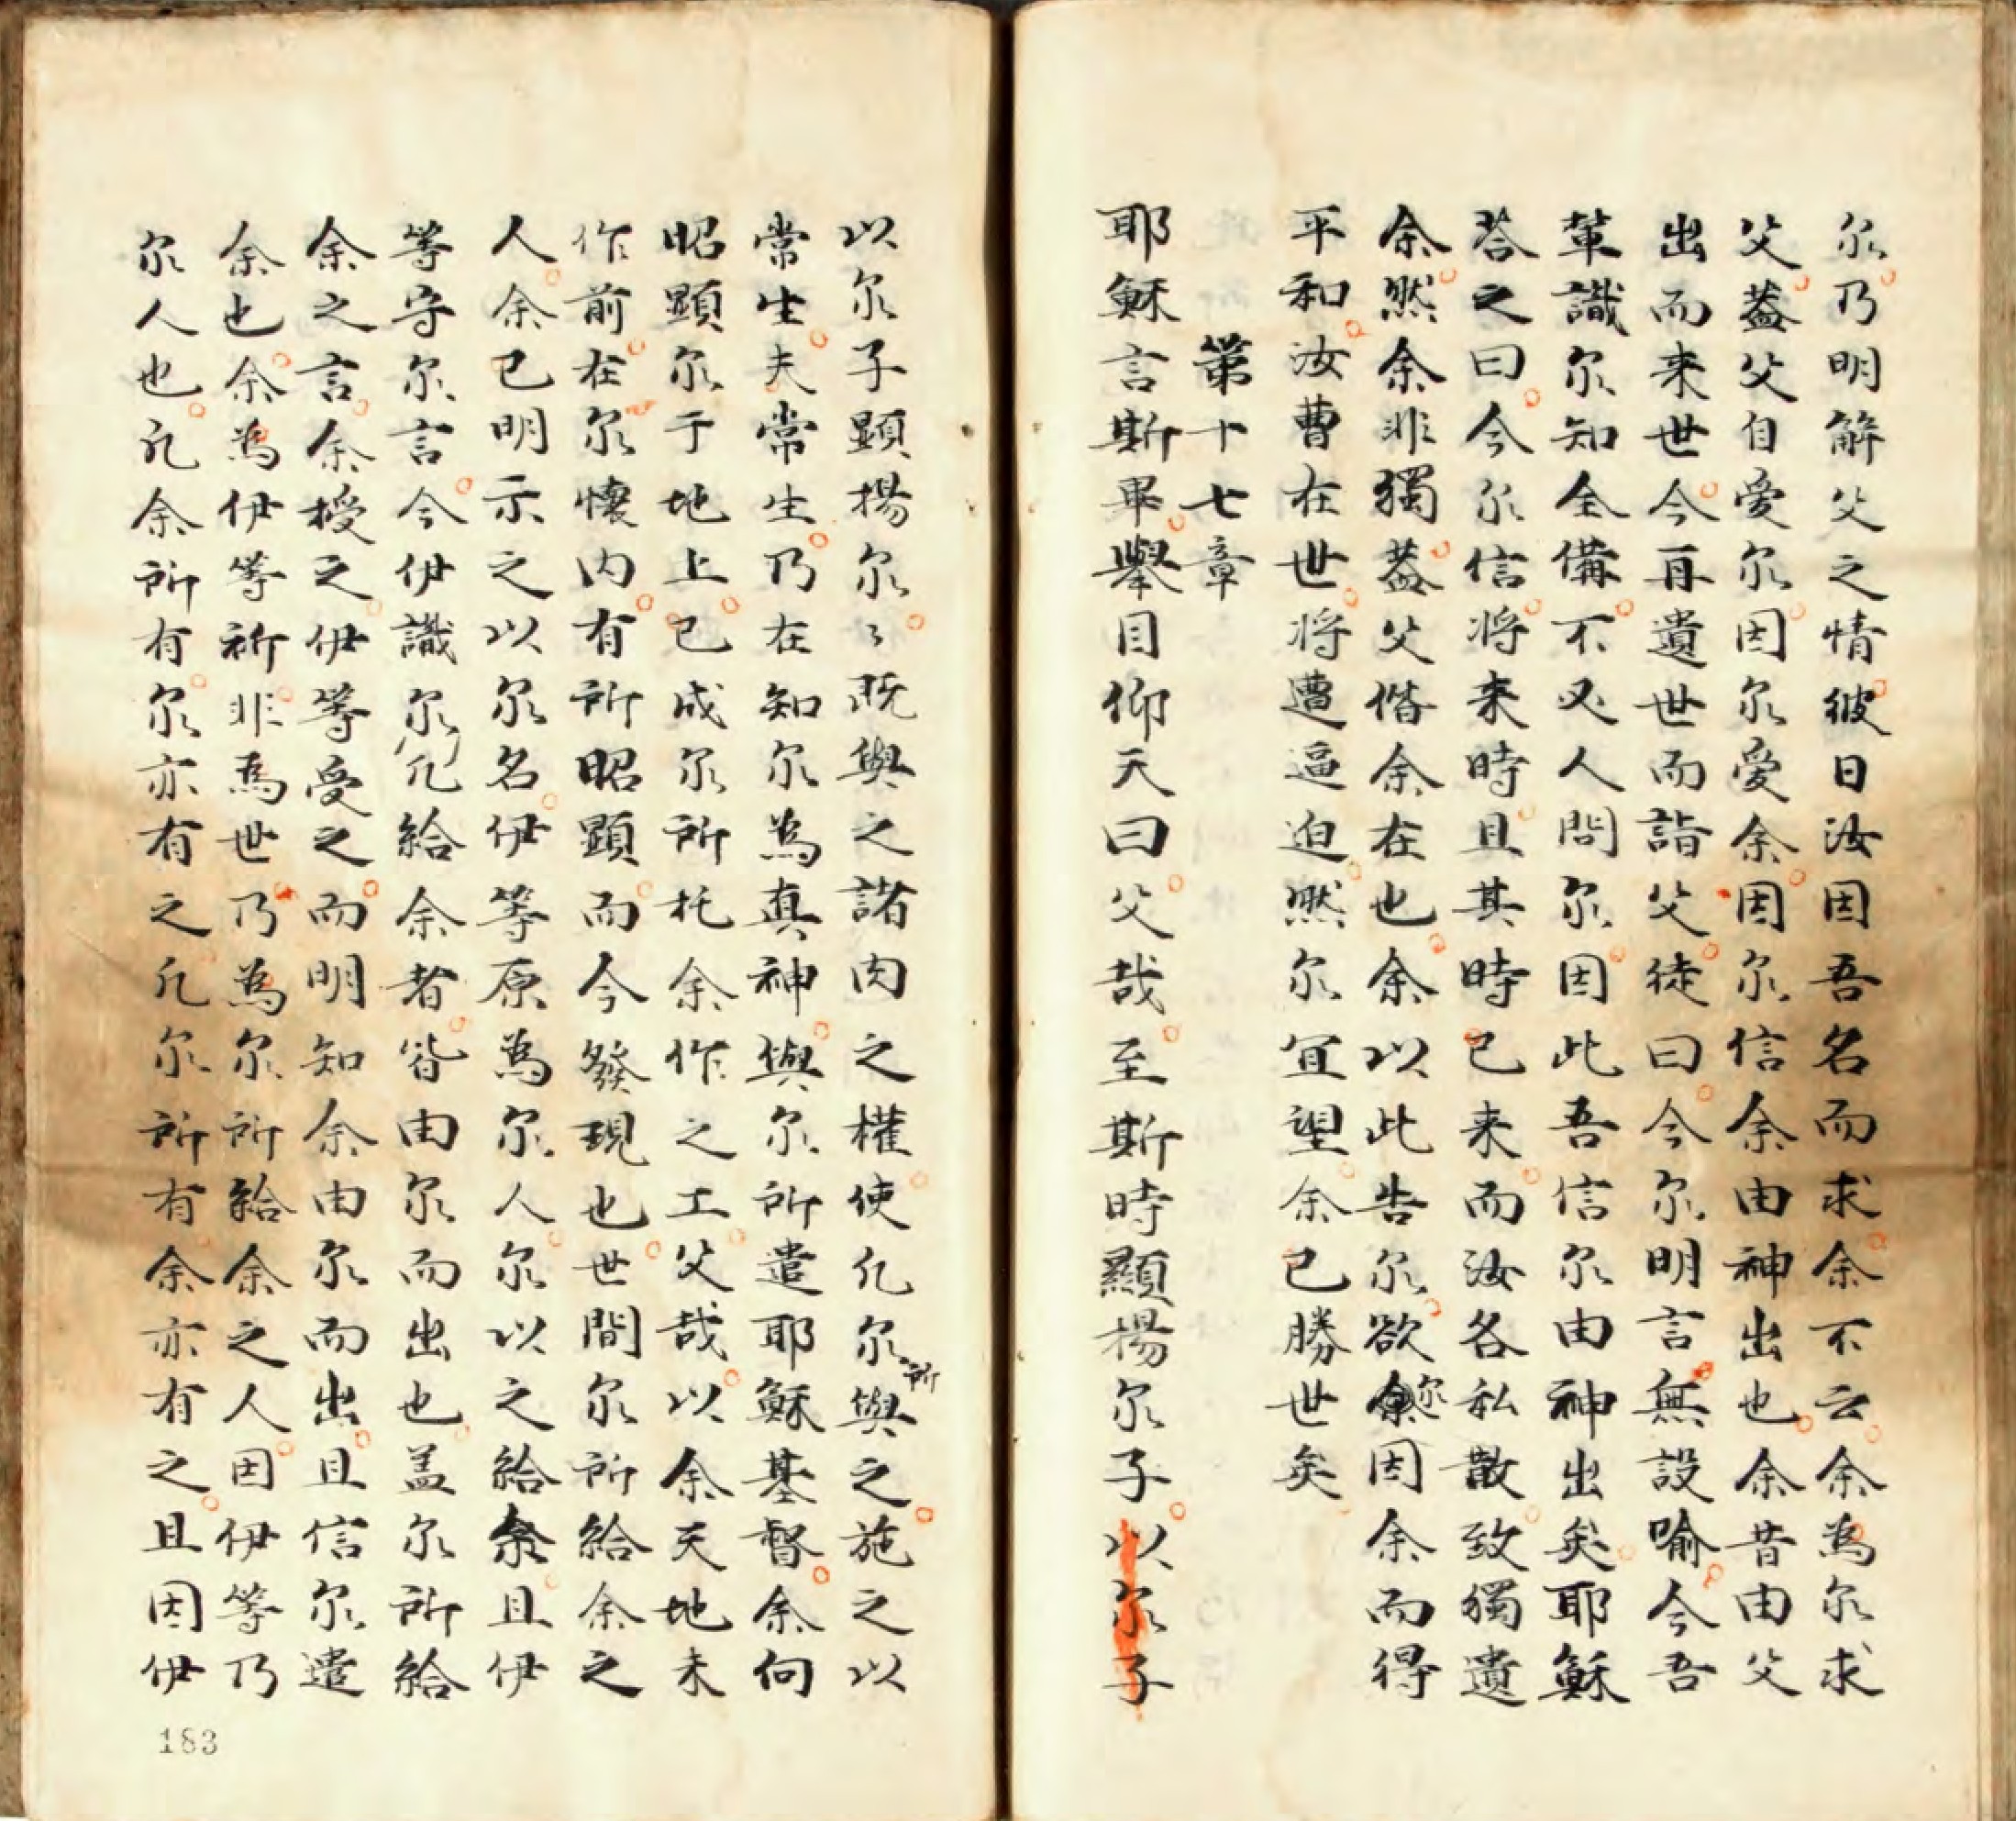 尔乃明解父之情彼日汝因吾名而求余不云余為尔求
父葢父自愛尔因尔愛余因尔信余由神出也余昔由父
出而来世今再遺世而詣父徒曰今尔明言無設喻今吾
輩識尔知全備不必人問尔因此吾信尔由神出矣耶穌
荅之曰今尔信将来時且其時已来而汝各私散致獨遺
余然余非獨葢父偕余在也余以此告尔欲尔因余而得
平和汝曹在世将遭逼迫然尔宜望余已勝世矣
第十七章
耶穌言斯畢舉目仰天曰父哉至斯時顯揚尔子以尔子
以尔子顕揚尔〻既與之諸肉之權使凢尔所與之施之以
常生夫常生乃在知尔為真神與尔所遣耶穌基督余向
昭顕尔于地上已成尔所托余作之工父哉以余天地未
作前在尔懐内有所昭顕而今發現也世間尔所給余之
人余已明示之以尔名伊等原為尔人尔以之給余且伊
等守尔言今伊識尔凢給余者皆由尔而出也盖尔所給
余之言余授之伊等受之而明知余由尔而出且信尔遣
余也余為伊等祈非為世乃為尔所給余之人因伊等乃
尔人也凢余所有尔亦有之凢尔所有余亦有之且因伊
183